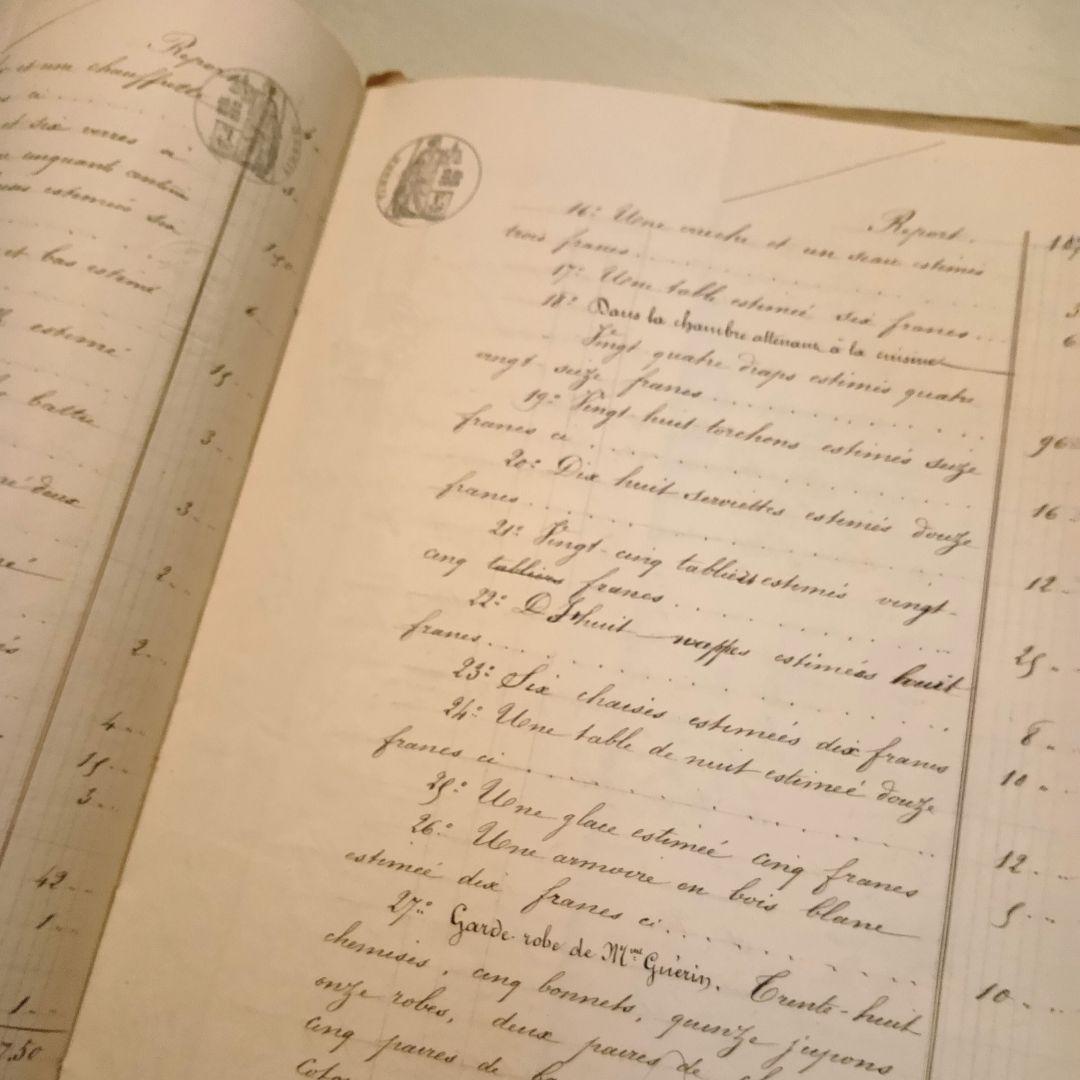 Report
et une chaufferette
et six verres à
estimés six
et bas estimé
estimé
battre
deux
3.
1.50
6
15
3
3
2
2
4
15
3
42
1
1
7.50
Report.
107
16° Une cruche et un seau estimés
trois francs
3
17° Une table estimée six francs
6
18° Dans la chambre attenant à la cuisine
Vingt quatre draps estimés quatre
vingt seize francs
96
19° Vingt-huit torchons estimés seize
francs ci
16
20° Dix huit serviettes estimés douze
francs
12
21° Vingt-cinq tabliers estimés vingt-
cinq tabliers francs
25
22° huit nappes estimées huit
francs
8
23° Six chaises estimées dix francs
10
24° Une table de nuit estimeé douze
francs ci
12
25° Une glace estimeé cinq francs
5
26° Une armoire en bois blanc
estimeé dix francs ci
10
27° Garde-robe de Mme Guérin. Trente-huit
chemises, cinq bonnets, quinze jupons
onze robes, deux paires de
cinq paires de